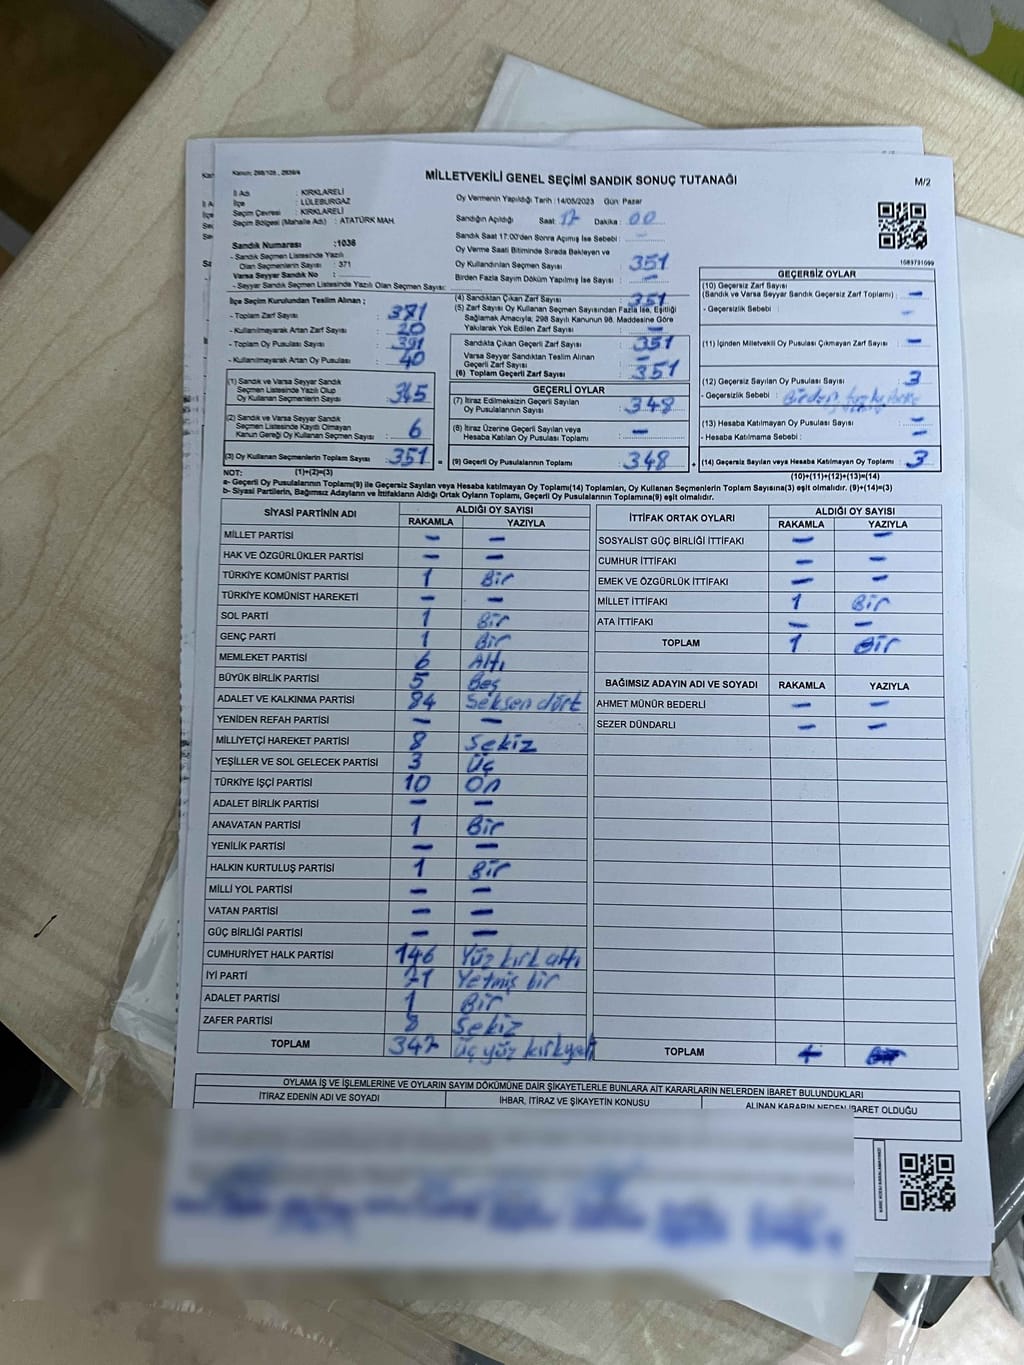 Kanun: 298/105 , 2839/4
MİLLETVEKİLİ GENEL SEÇİMİ SANDIK SONUÇ TUTANAĞI
M/2
İl Adı : KIRKLARELİ
İlçe : LÜLEBURGAZ
Seçim Çevresi : KIRKLARELİ
Seçim Bölgesi (Mahalle Adı) : ATATÜRK MAH.
Sandık Numarası :1036
- Sandık Seçmen Listesinde Yazılı
Olan Seçmenlerin Sayısı : 371
Varsa Seyyar Sandık No :
- Seyyar Sandık Seçmen Listesinde Yazılı Olan Seçmen Sayısı:
Oy Vermenin Yapıldığı Tarih :14/05/2023 Gün: Pazar
Sandığın Açıldığı Saat: 17 Dakika : 00
Sandık Saat 17:00'den Sonra Açılmış İse Sebebi : -
Oy Verme Saati Bitiminde Sırada Bekleyen ve
Oy Kullandırılan Seçmen Sayısı : 351
Birden Fazla Sayım Döküm Yapılmış İse Sayısı : -
İlçe Seçim Kurulundan Teslim Alınan ;
- Toplam Zarf Sayısı : 371
- Kullanılmayarak Artan Zarf Sayısı : 20
- Toplam Oy Pusulası Sayısı : 391
- Kullanılmayarak Artan Oy Pusulası : 40
(1) Sandık ve Varsa Seyyar Sandık
Seçmen Listesinde Yazılı Olup
Oy Kullanan Seçmenlerin Sayısı : 345
(2) Sandık ve Varsa Seyyar Sandık
Seçmen Listesinde Kayıtlı Olmayan
Kanun Gereği Oy Kullanan Seçmen Sayısı : 6
(3) Oy Kullanan Seçmenlerin Toplam Sayısı : 351
(4) Sandıktan Çıkan Zarf Sayısı : 351
(5) Zarf Sayısı Oy Kullanan Seçmen Sayısından Fazla İse, Eşitliği
Sağlamak Amacıyla; 298 Sayılı Kanunun 98. Maddesine Göre
Yakılarak Yok Edilen Zarf Sayısı : -
Sandıkta Çıkan Geçerli Zarf Sayısı : 351
Varsa Seyyar Sandıktan Teslim Alınan
Geçerli Zarf Sayısı : -
(6) Toplam Geçerli Zarf Sayısı : 351
GEÇERLİ OYLAR
(7) İtiraz Edilmeksizin Geçerli Sayılan
Oy Pusulalarının Sayısı : 348
(8) İtiraz Üzerine Geçerli Sayılan veya
Hesaba Katılan Oy Pusulası Toplamı : -
= (9) Geçerli Oy Pusulalarının Toplamı : 348
1083731099
GEÇERSİZ OYLAR
(10) Geçersiz Zarf Sayısı
(Sandık ve Varsa Seyyar Sandık Geçersiz Zarf Toplamı) : -
- Geçersizlik Sebebi : -
(11) İçinden Milletvekili Oy Pusulası Çıkmayan Zarf Sayısı : -
(12) Geçersiz Sayılan Oy Pusulası Sayısı : 3
- Geçersizlik Sebebi : Birden fazla
(13) Hesaba Katılmayan Oy Pusulası Sayısı : -
- Hesaba Katılmama Sebebi : -
+ (14) Geçersiz Sayılan veya Hesaba Katılmayan Oy Toplamı : 3
NOT: (1)+(2)=(3)
(10)+(11)+(12)+(13)=(14)
a- Geçerli Oy Pusulalarının Toplamı(9) ile Geçersiz Sayılan veya Hesaba Katılmayan Oy Toplamı(14) Toplamları, Oy Kullanan Seçmenlerin Toplam Sayısına(3) eşit olmalıdır. (9)+(14)=(3)
b- Siyasi Partilerin, Bağımsız Adayların ve İttifakların Aldığı Ortak Oyların Toplamı, Geçerli Oy Pusulalarının Toplamına(9) eşit olmalıdır.
SİYASİ PARTİNİN ADI ALDIĞI OY SAYISI
RAKAMLA YAZIYLA
MİLLET PARTİSİ - -
HAK VE ÖZGÜRLÜKLER PARTİSİ - -
TÜRKİYE KOMÜNİST PARTİSİ 1 Bir
TÜRKİYE KOMÜNİST HAREKETİ - -
SOL PARTİ 1 Bir
GENÇ PARTİ 1 Bir
MEMLEKET PARTİSİ 6 Altı
BÜYÜK BİRLİK PARTİSİ 5 Beş
ADALET VE KALKINMA PARTİSİ 84 Seksen dört
YENİDEN REFAH PARTİSİ - -
MİLLİYETÇİ HAREKET PARTİSİ 8 Sekiz
YEŞİLLER VE SOL GELECEK PARTİSİ 3 Üç
TÜRKİYE İŞÇİ PARTİSİ 10 On
ADALET BİRLİK PARTİSİ - -
ANAVATAN PARTİSİ 1 Bir
YENİLİK PARTİSİ - -
HALKIN KURTULUŞ PARTİSİ 1 Bir
MİLLİ YOL PARTİSİ - -
VATAN PARTİSİ - -
GÜÇ BİRLİĞİ PARTİSİ - -
CUMHURİYET HALK PARTİSİ 146 Yüz kırk altı
İYİ PARTİ 71 Yetmiş bir
ADALET PARTİSİ 1 Bir
ZAFER PARTİSİ 8 Sekiz
TOPLAM 347 Üç yüz kırkyedi
İTTİFAK ORTAK OYLARI ALDIĞI OY SAYISI
RAKAMLA YAZIYLA
SOSYALİST GÜÇ BİRLİĞİ İTTİFAKI - -
CUMHUR İTTİFAKI - -
EMEK VE ÖZGÜRLÜK İTTİFAKI - -
MİLLET İTTİFAKI 1 Bir
ATA İTTİFAKI - -
TOPLAM 1 Bir
BAĞIMSIZ ADAYIN ADI VE SOYADI RAKAMLA YAZIYLA
AHMET MÜNÜR BEDERLİ - -
SEZER DÜNDARLI - -
TOPLAM
OYLAMA İŞ VE İŞLEMLERİNE VE OYLARIN SAYIM DÖKÜMÜNE DAİR ŞİKAYETLERLE BUNLARA AİT KARARLARIN NELERDEN İBARET BULUNDUKLARI
İTİRAZ EDENİN ADI VE SOYADI İHBAR, İTİRAZ VE ŞİKAYETİN KONUSU ALINAN KARARIN NEDEN İBARET OLDUĞU